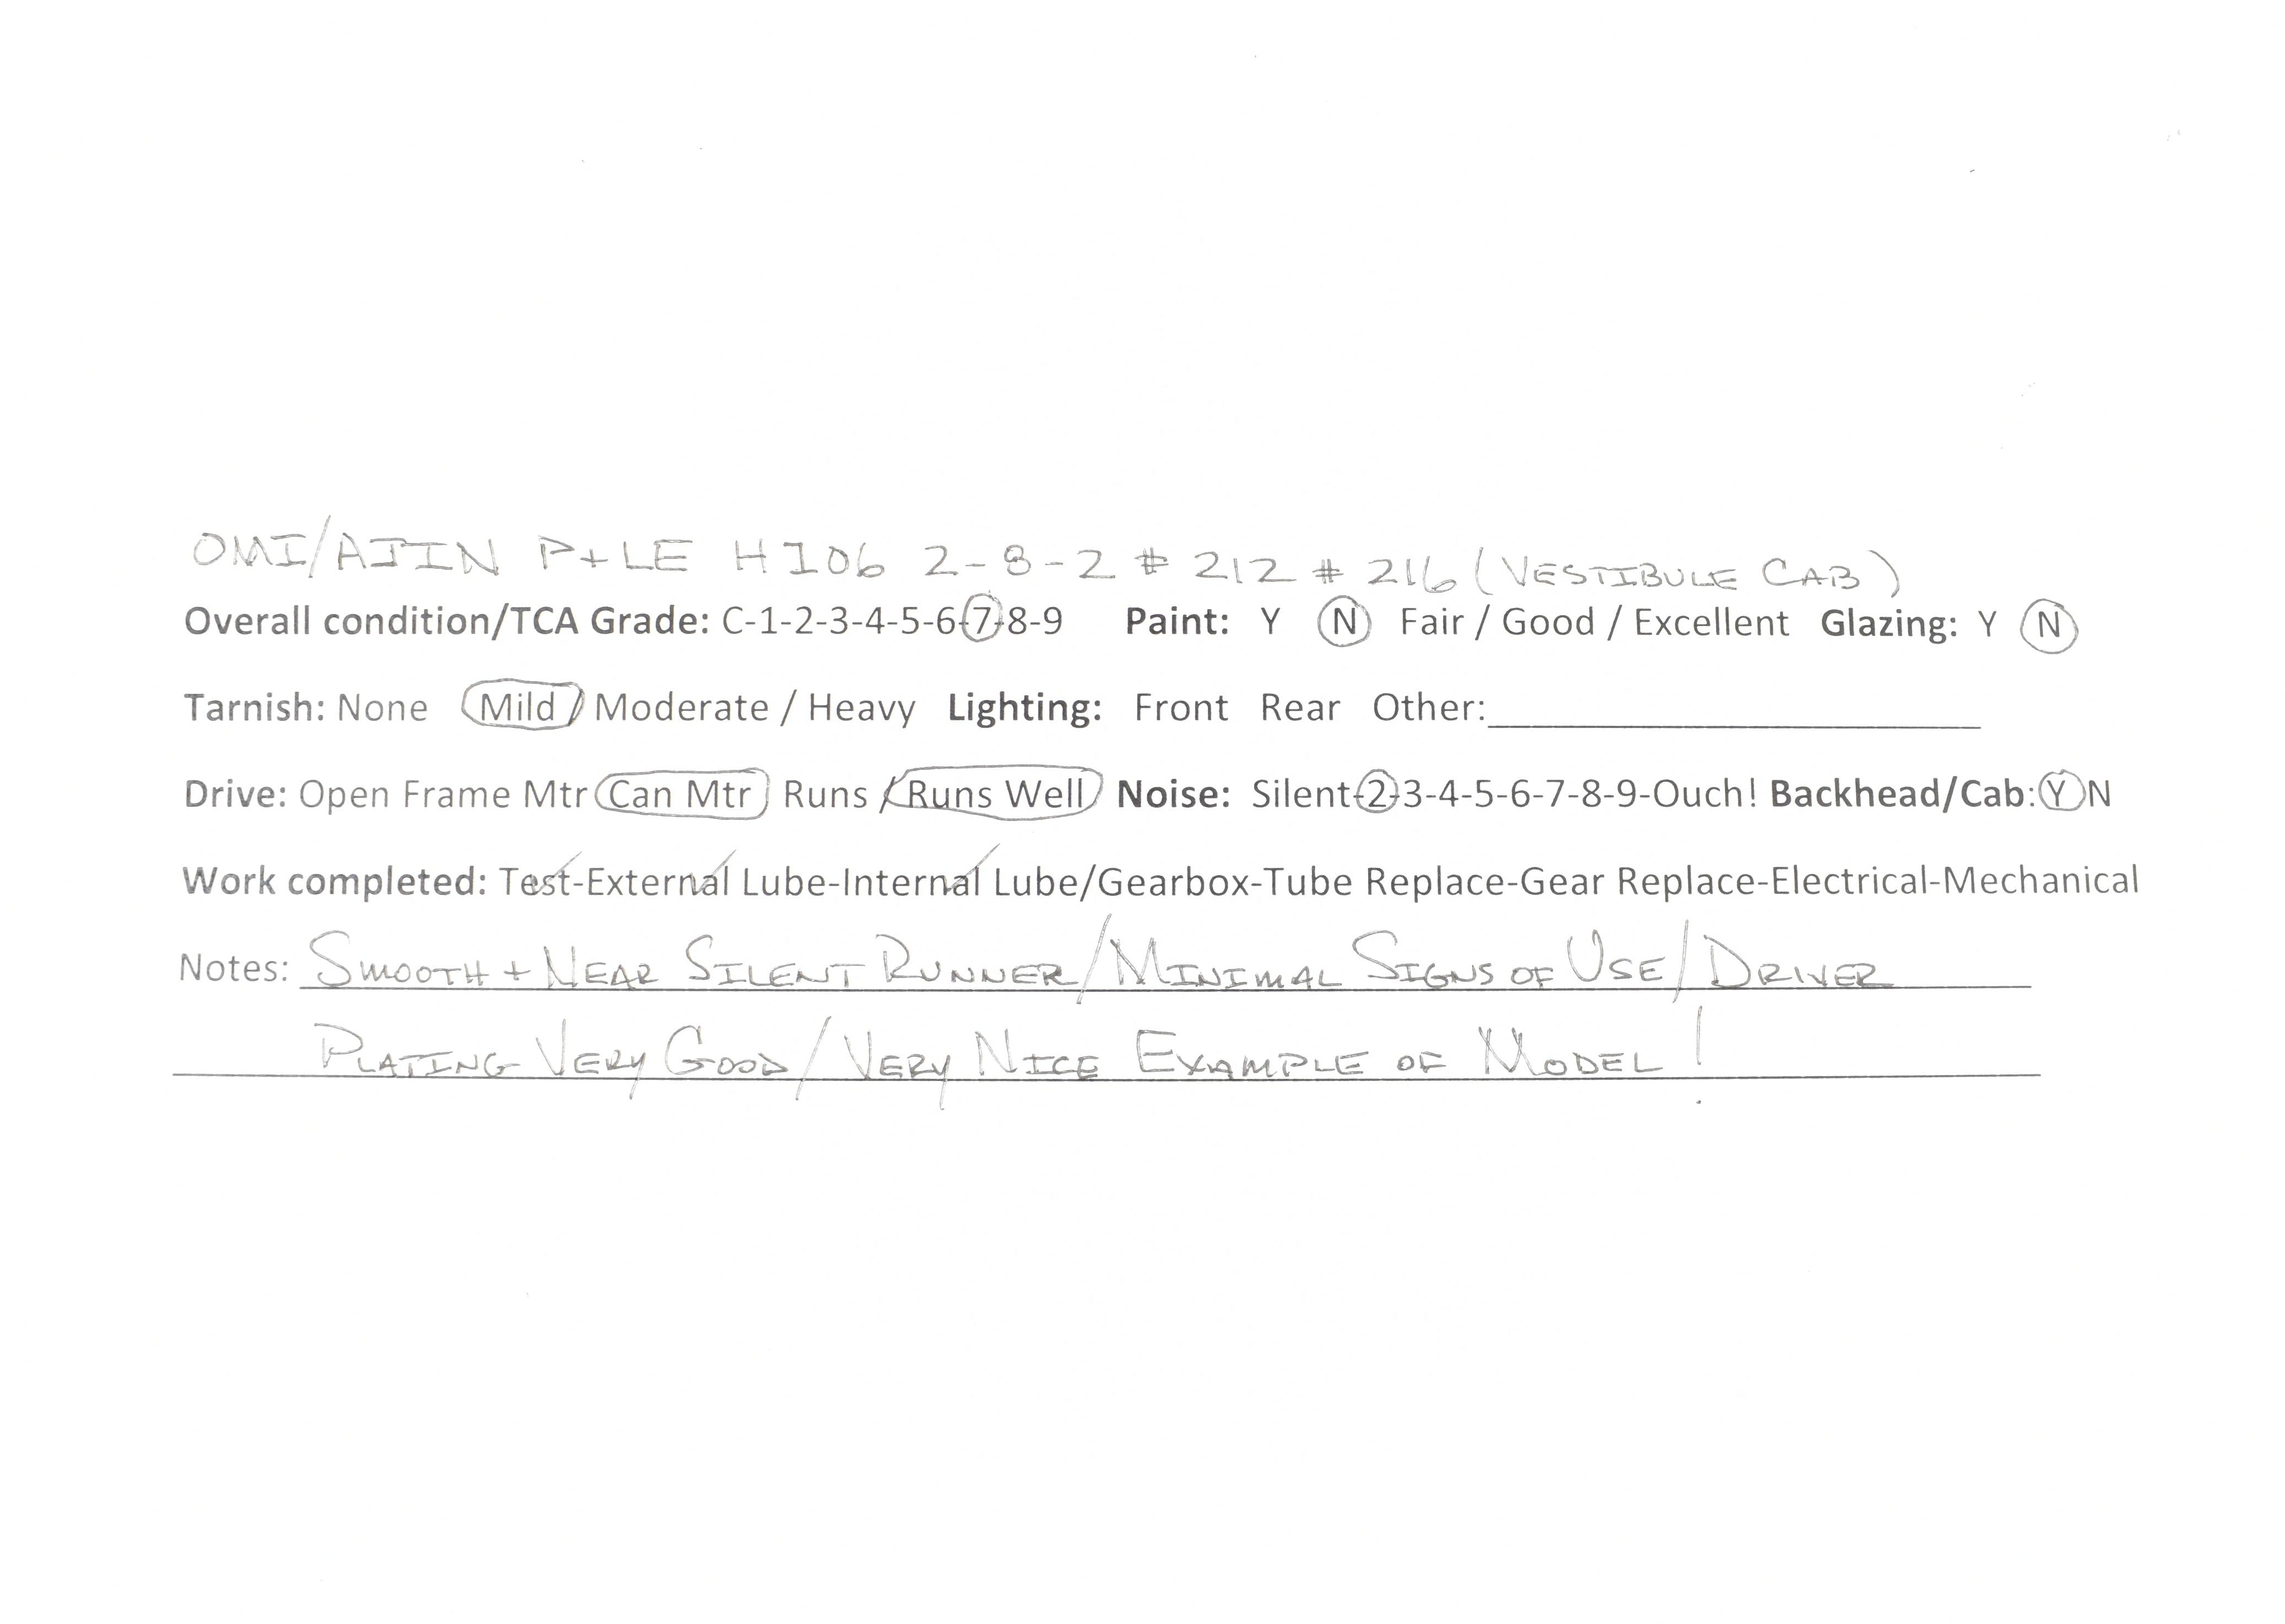 OMI/AJIN P+LE H106 2-8-2 # 212 # 216 (VESTIBULE CAB)
Overall condition/TCA Grade: C-1-2-3-4-5-6-7-8-9 Paint: Y N Fair / Good / Excellent Glazing: Y N
Tarnish: None Mild / Moderate / Heavy Lighting: Front Rear Other:
Drive: Open Frame Mtr Can Mtr Runs / Runs Well Noise: Silent-2-3-4-5-6-7-8-9-Ouch! Backhead/Cab: Y N
Work completed: Test-External Lube-Internal Lube/Gearbox-Tube Replace-Gear Replace-Electrical-Mechanical
Notes: SMOOTH + NEAR SILENT RUNNER/MINIMAL SIGNS OF USE/DRIVER
PLATING VERY GOOD/VERY NICE EXAMPLE OF MODEL!